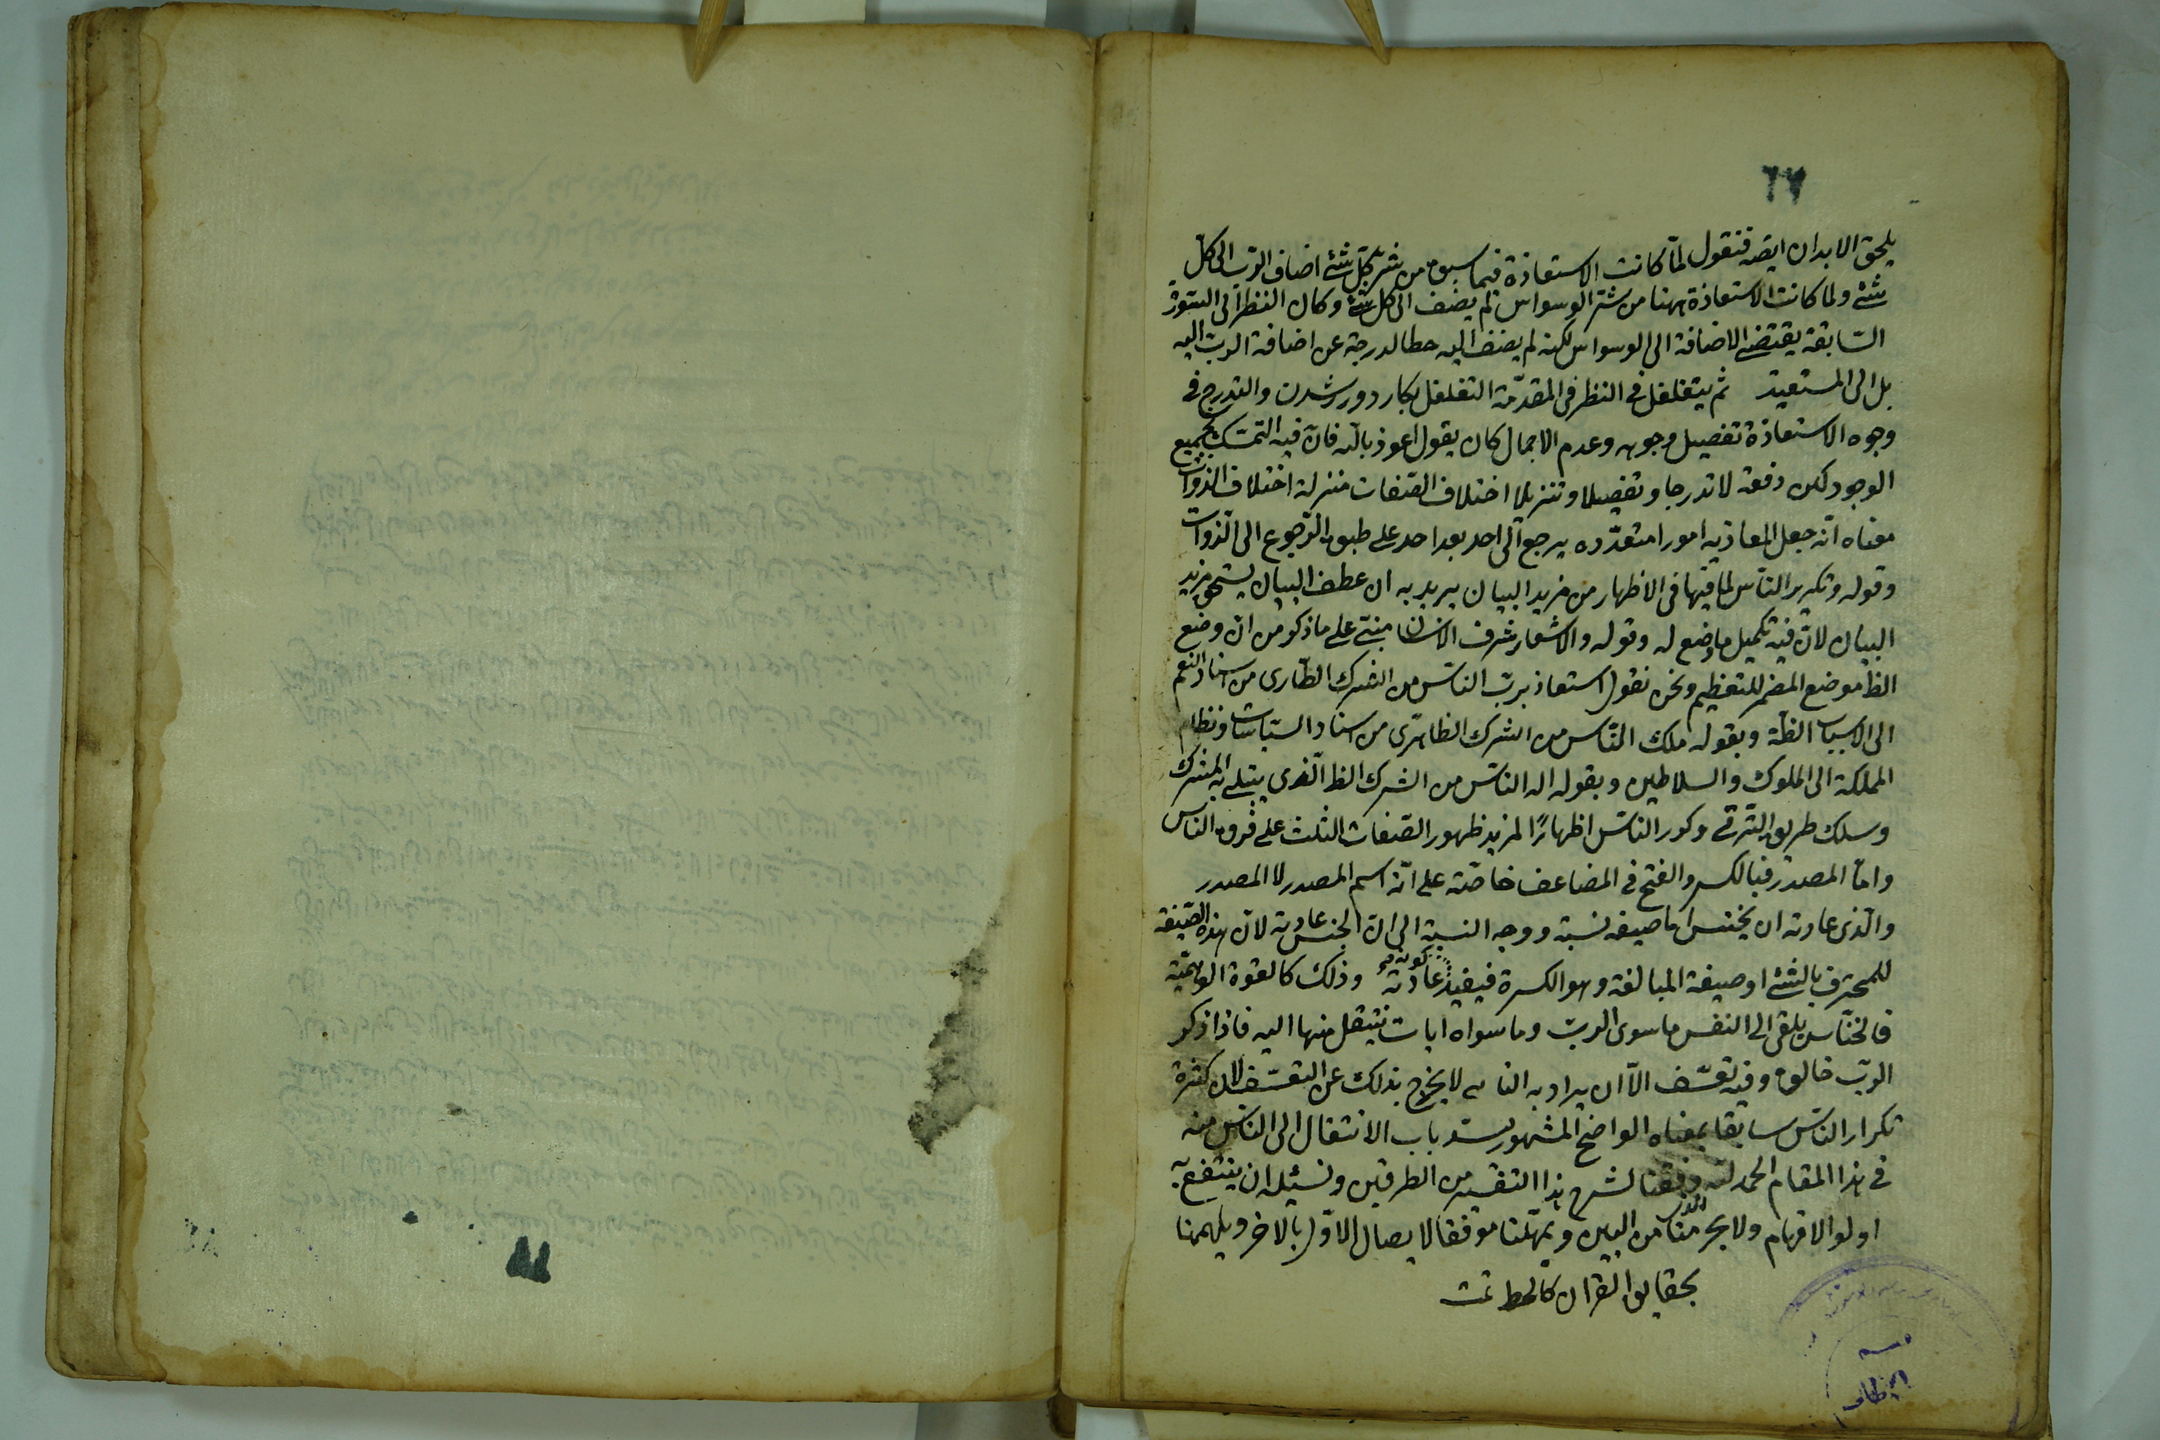 ٦٧
يلحق الابدان ايضه فنقول لمّا كانت الاستعاذة فيما سبق من شر كل شئ اضاف الرّب الى كلّ
شئ ولما كانت الاستعاذة ههنا من شر الوسواس لم يضف الى كل شئ وكان النظر الى السّورة
السّابقة يقتضى الاضافة الى الوسواس لكنه لم يضف اليه حطا لدرجة عن اضافة الرب اليه
بل الى المستعيذ ثم يتغلغل فى النظر فى المقدّمة التغلغل بكار دور شدن والتدرج فى
وجوه الاستعاذة تفصيل وجوه وعدم الاجمال كان يقول اعوذ بالله فان فيه التمسّك بجميع
الوجود لكن دفعة لا تدرجا وتفصيلا وتنزيلا اختلاف الصّفات منزلة اختلاف الذوات
معناه انّه جعل المعاذ به امورا متعدّده يرجع الى احد بعد احد على طبق الرّجوع الى الذوات
وقوله وتكرير النّاس لما فيها فى الاظهار من مزيد البيان يريد به ان عطف البيان يستحق مزيد
البيان لان فيه تكميل ما وضع له وقوله والاشعار شرف الانسان مبنىّ على ما ذكر من ان وضع
الظا موضع المضمر للتعظيم ونحن نقول استعاذ بربّ النّاس من الشرك الطّارى من اسناد النعم
الى الاسباب الظّة وبقوله ملك النّاس من الشرك الظاهرى من اسناد السّياسات ونظام
المملكة الى الملوك والسلاطين وبقوله اله النّاس من الشرك الظ الّذى يبتلى به المشرك
وسلك طريق الترقى وكرر النّاس اظهارًا لمزيد ظهور الصّفات الثلث على فرق النّاس
وامّا المصدر فبالكسر والفتح فى المضاعف خاصّة على انّه اسم المصدر لا المصدر
والّذى عادته ان يخنس اما صيغه نسبة ووجه النسبة الى ان الخنس عادته لان هذه الصّيغة
للمحترف بالشئ او صيغة المبالغة وهو الكسرة فيفيد كونه عادته وذلك كالقوة الوهميّة
فالخنّاس يلقى الى النفس ما سوى الرب وما سواه ايات ينتقل منها اليه فاذا ذكر
الربّ خالق وفيه تعسّف الّا ان يراد به الناسى لا يخرج بذلك عن التعسّف لان كثرة
تكرار النّاس سابقا بمعناه الواضح المشهور يسد باب الانتقال الى النّاس منه
فى هذا المقام الحمد لله وفقنا لشرح هذا التفسير من الطرفين ونسئله ان ينتفع به
اولو الافهام ولا يحرمنا من البين ويمهّلنا موفقا لايصال الاوّل بالاخر ويلهمنا
بحقايق القران تمت